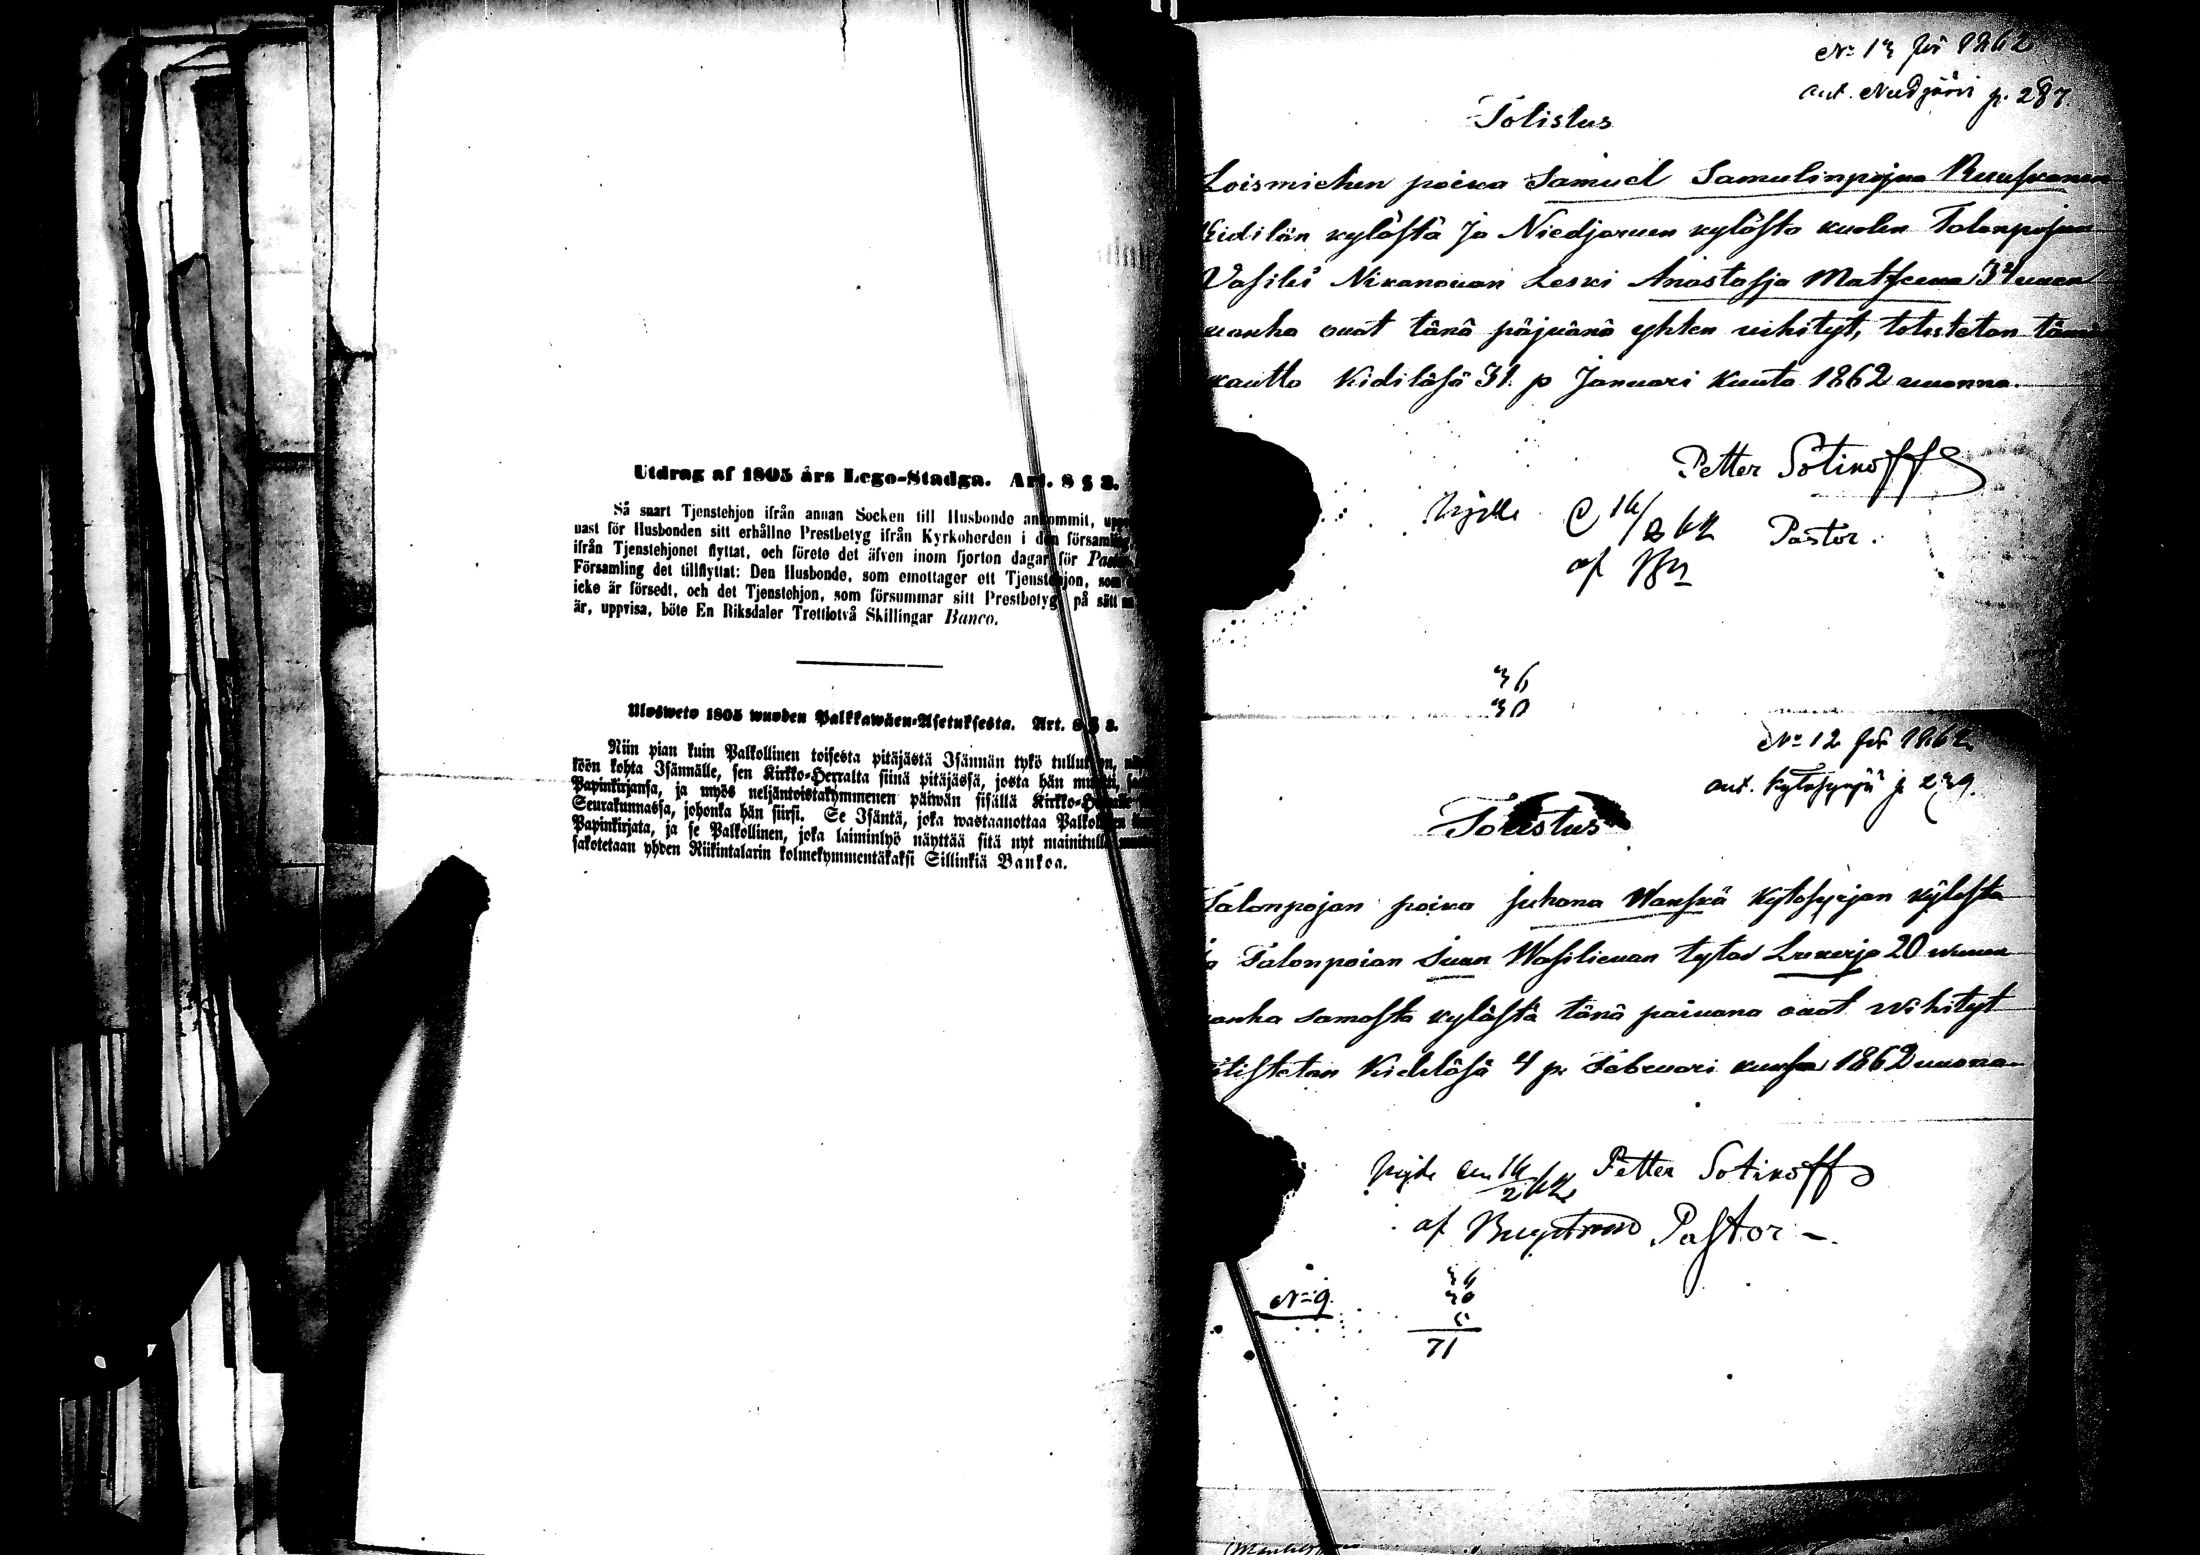 Utdrag af 1805 års Lego-Stadga. Art. 8 § 3.
Så snart Tjenstehjon ifrån annan Socken till Husbonde ankommit,
nast för Husbonden sitt erhållne Prestbetyg ifrån Kyrkoherden i den
ifrån Tjenstehjonet flyttat, och förete det äfven inom fjorton dagar för
Församling det tillflyttat: Den Husbonde, som emottager ett Tjenstehjon, som
icke är försedt, och det Tjenstehjon, som försummar sitt Prestbetyg på sätt
är, uppvisa, böte En Riksdaler Trettiotvå Skillingar Banco.
Ulosweto 1805 wuoden Palkkawäen-Asetuksesta. Art. 8 § 3.
Niin pian kuin Palkollinen toisesta pitäjästä Isännän tykö tullut on,
köön kohta Isännälle, sen Kirkko-Herralta siinä pitäjässä, josta hän
Papinkirjansa, ja myös neljäntoistakymmenen päiwän sisällä
Seurakunnassa, johonka hän siirsi. Se Isäntä, joka wastaanottaa
Papinkirjata, ja se Palkollinen, joka laiminlyö näyttää sitä nyt mainitulla
sakotetaan yhden Riikintalarin kolmekymmentäkaksi Sillinkiä Bankoa.
No 13 för 1862
ant. p. 287.
Totistus
Loismiehen poika Samuel Samulinpojan Ruuskanen
Kidilän kylästä Ja Niedjarven kylästa kuolen Talonpojan
Vasilei Nikanovan Leski Anastasja Matfeewa 34 vuen
vanha ovat tänä päjvänä yhten vihityt, totistetan tämän
kautta Kidiläsä 31. p Januari Kuuta 1862 vuonna.
Petter Sotikoff
Pastor.
af
36
30
No 12 för 1862
ant. Kytösyrjä p 239.
Totistus
Talonpojan poika Juhana Wanskä Kytösyrjan kylästa
ja Talonpoian Ivan Wasilievan tytar Lukerja 20 vuuen
vanha samasta kylästä tänä päivana ovat vihityt
totistetan Kideläsä 4 p. Februari kuusa 1862 vuonna
Petter Sotikoff
af Pastor
No 9.
36
30
5
71